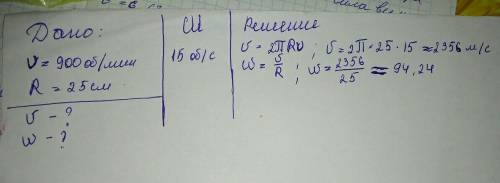 Дано:
ν = 900 об/мин
R = 25 см
v - ?
w - ?
СИ
15 об/с
Решение
v = 2πRν ; v = 2π • 25 • 15 ≈ 2356 м/с
w = v/R ; w = 2356/25 = 94,24